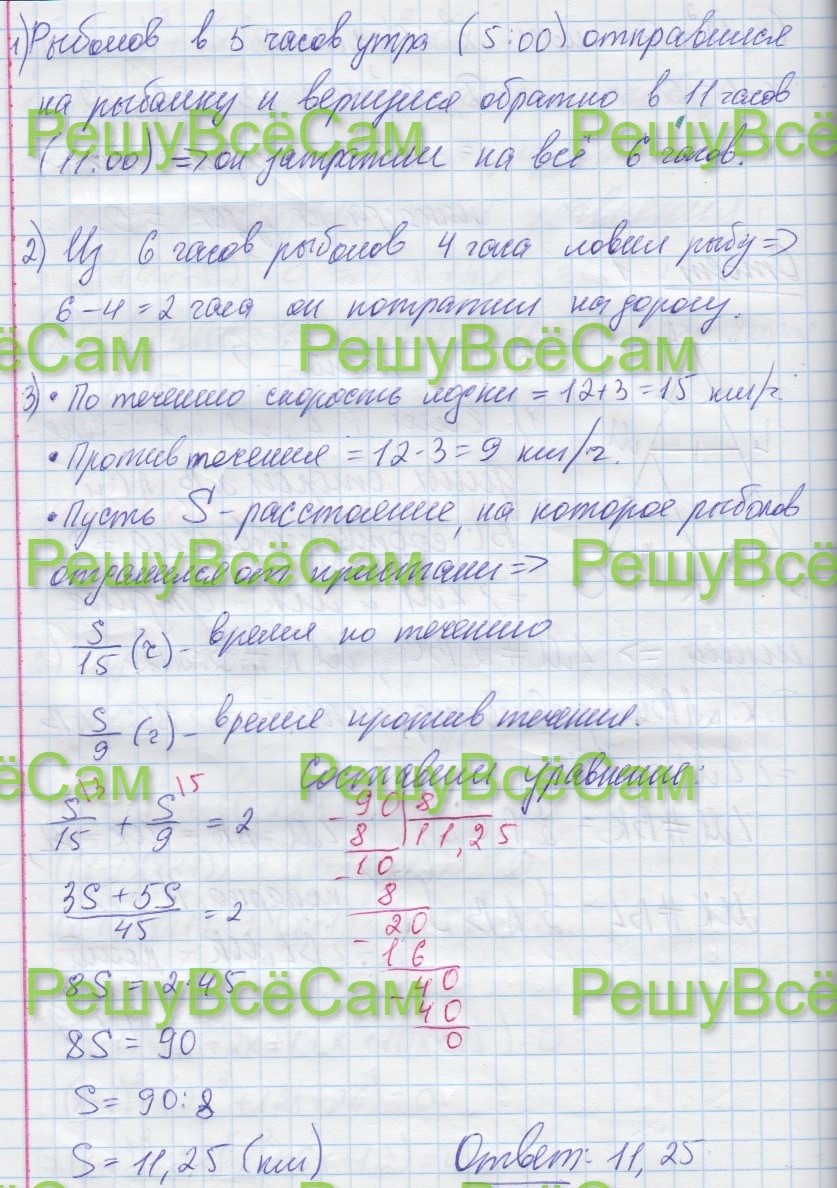 1) Рыболов в 5 часов утра (5:00) отправился
на рыбалку и вернулся обратно в 11 часов
(11:00) => он затратил на всё 6 часов.
2) Из 6 часов рыболов 4 часа ловил рыбу =>
6-4=2 часа он потратил на дорогу.
3) • По течению скорость лодки = 12+3=15 км/ч
• Против течения = 12-3=9 км/ч.
• Пусть S - расстояние, на которое рыболов
отдалился от пристани =>
S/15 (ч) - время по течению
S/9 (ч) - время против течения.
Составим уравнение:
S/15 + S/9 = 2
(3S + 5S)/45 = 2
8S = 2·45
8S = 90
S = 90:8
S = 11,25 (км)
- 90 | 8
8 | 11,25
- 10
8
20
- 16
- 40
40
0
Ответ: 11,25
РешуВсёСам
РешуВсё
ёСам
РешуВсёСам
РешуВсёСам
РешуВсё
ёСам
РешуВсёСам
РешуВсёСам
РешуВсё